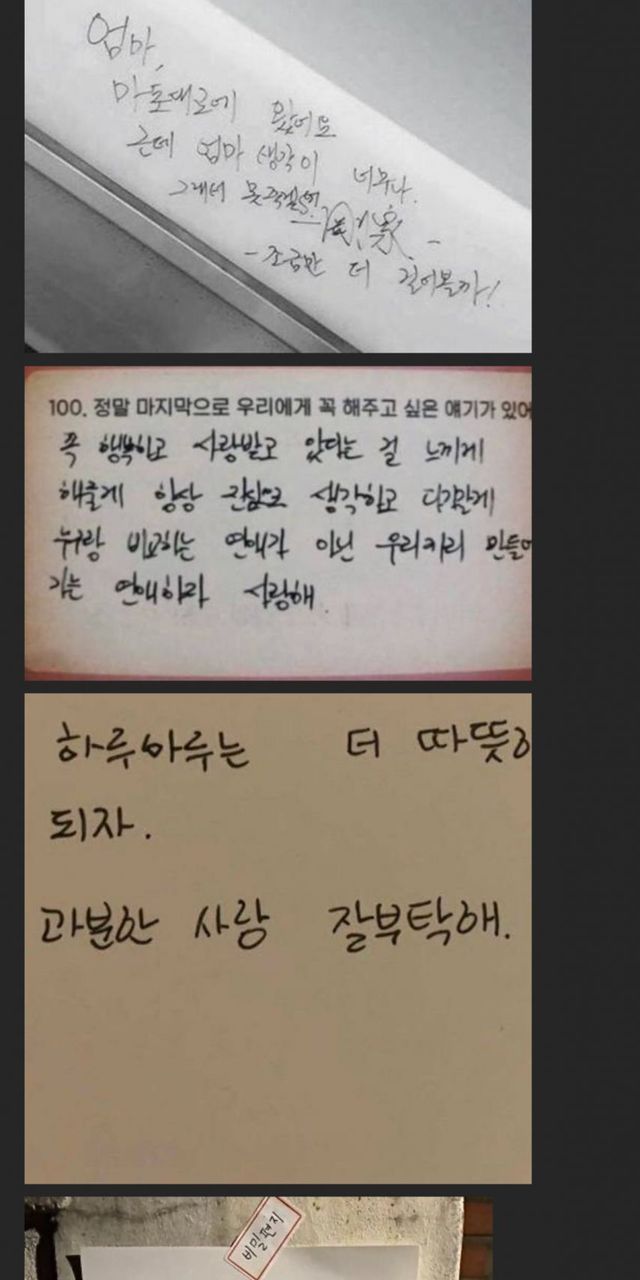 엄마,
마포대교에 왔어요
근데 엄마 생각이 너무나.
그래서 못죽겠어.
-조금만 더 걸어볼까!
100. 정말 마지막으로 우리에게 꼭 해주고 싶은 얘기가 있어
꼭 행복하고 사랑받고 있다는 걸 느끼게
해줄게 항상 진심으로 생각하고 다가갈게
누구랑 비교하는 연애가 아닌 우리끼리 만들어
가는 연애하자 사랑해
하루하루는 더 따뜻
되자.
과분한 사랑 잘부탁해.
비밀편지